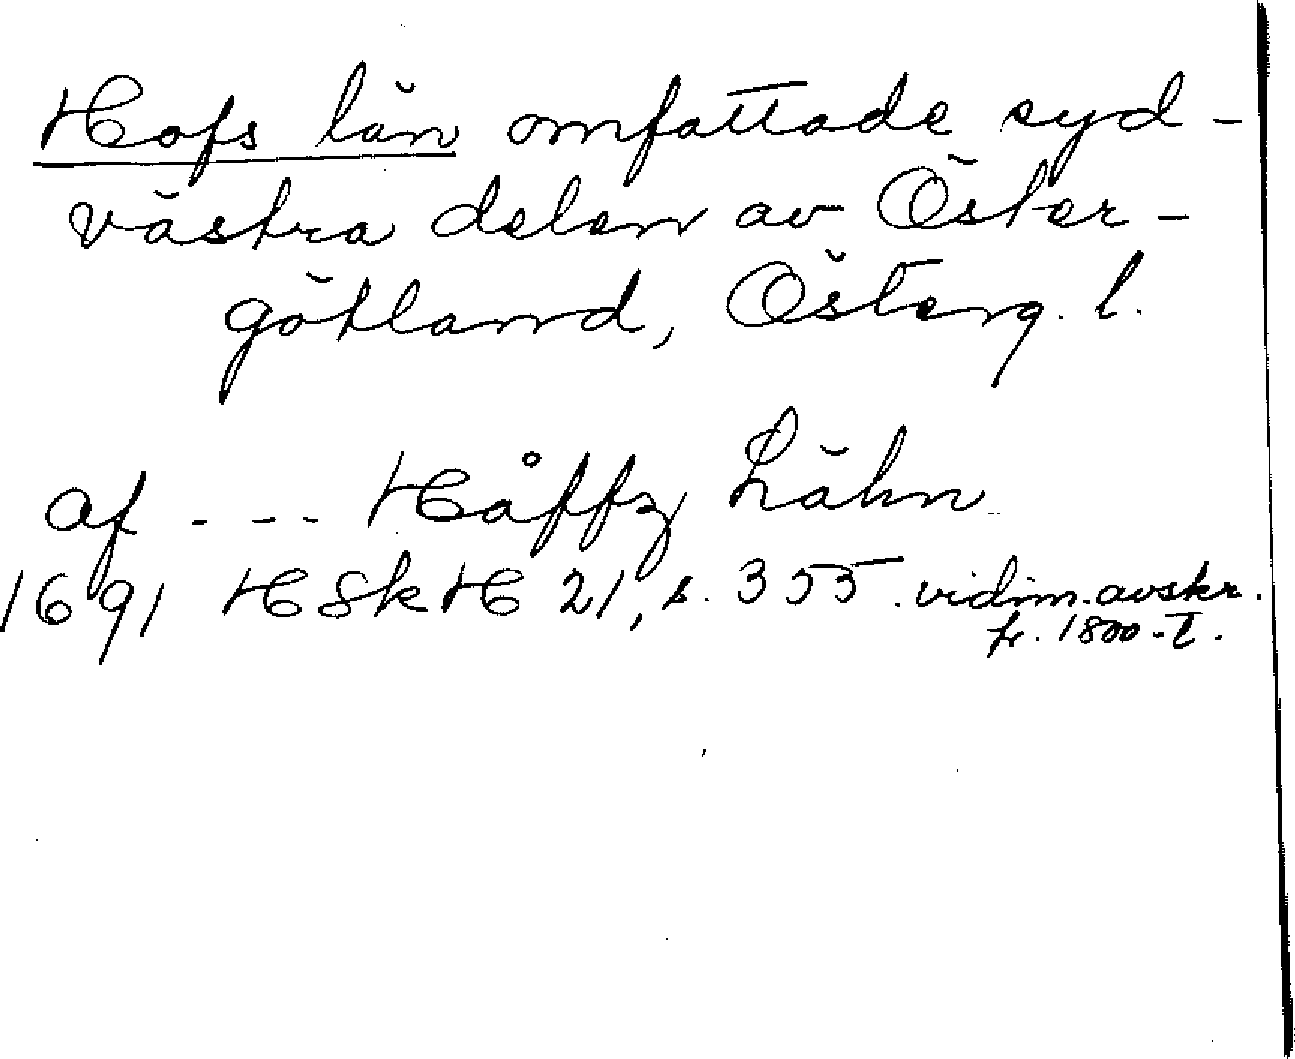 Hofs län omfattade syd-
västra delen av Öster-
götland, Österg. l.
af - - - Håffz Lähn
1691 HSkH 21, s. 355. vidim. avskr.
fr. 1800-t.